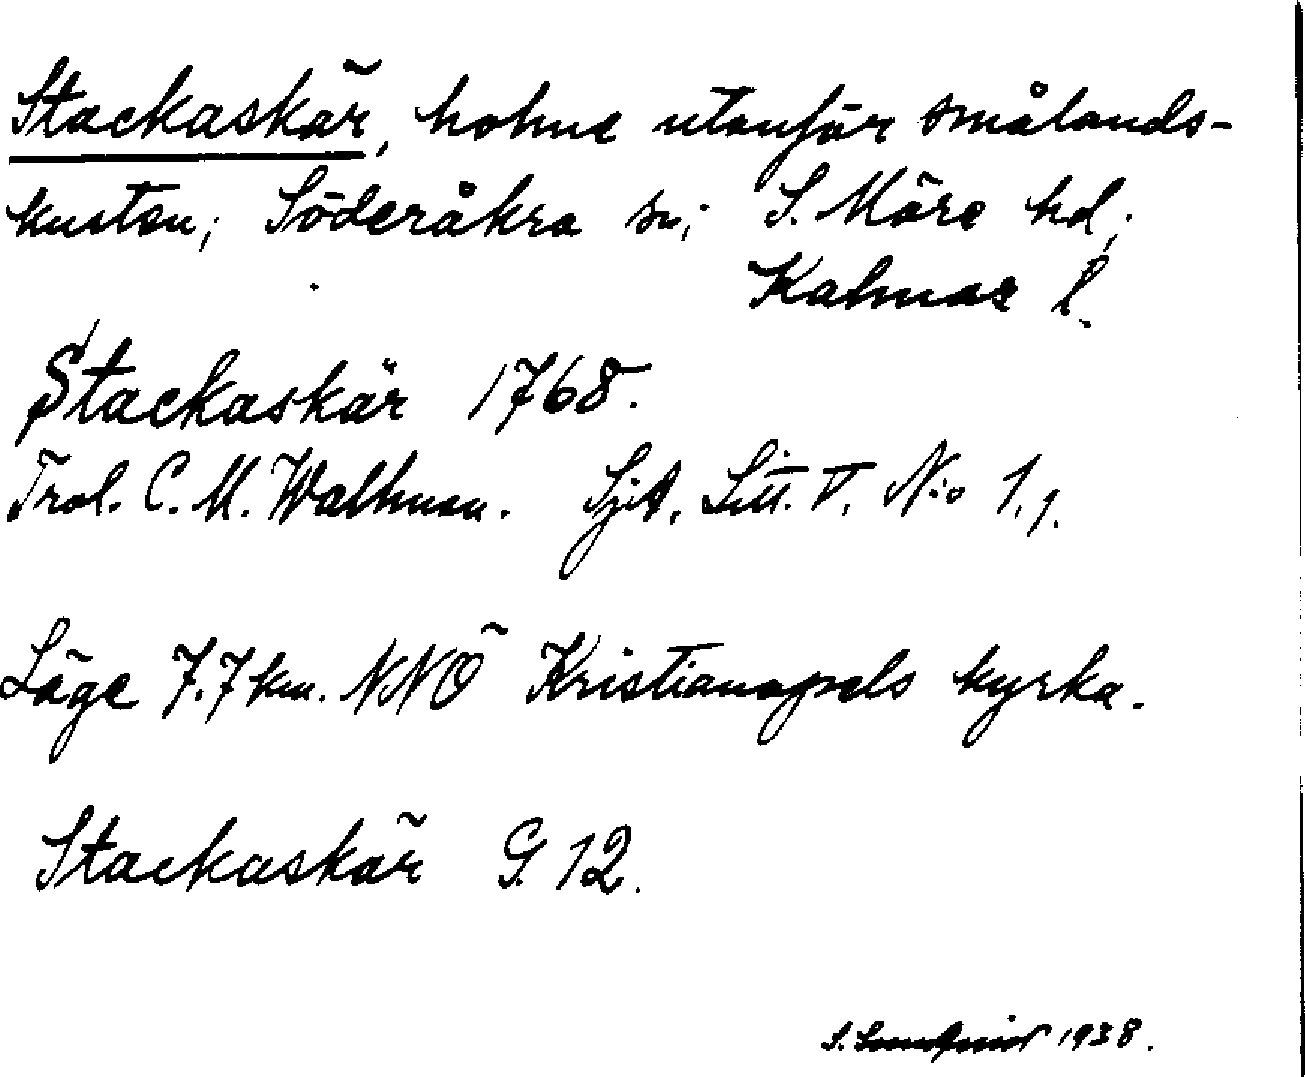 Stackaskär, holme utanför smålands-
kusten; Söderåkra sn; S. Möre hd;
Kalmar l.
Stackaskär 1768.
Trol. C. M. Wallman. Sjk. Litt. V. N:o 1. 9.
Läge 7.7 km. NNÖ Kristianopels kyrka.
Stackaskär G 12.
S. Lundqvist 1938.